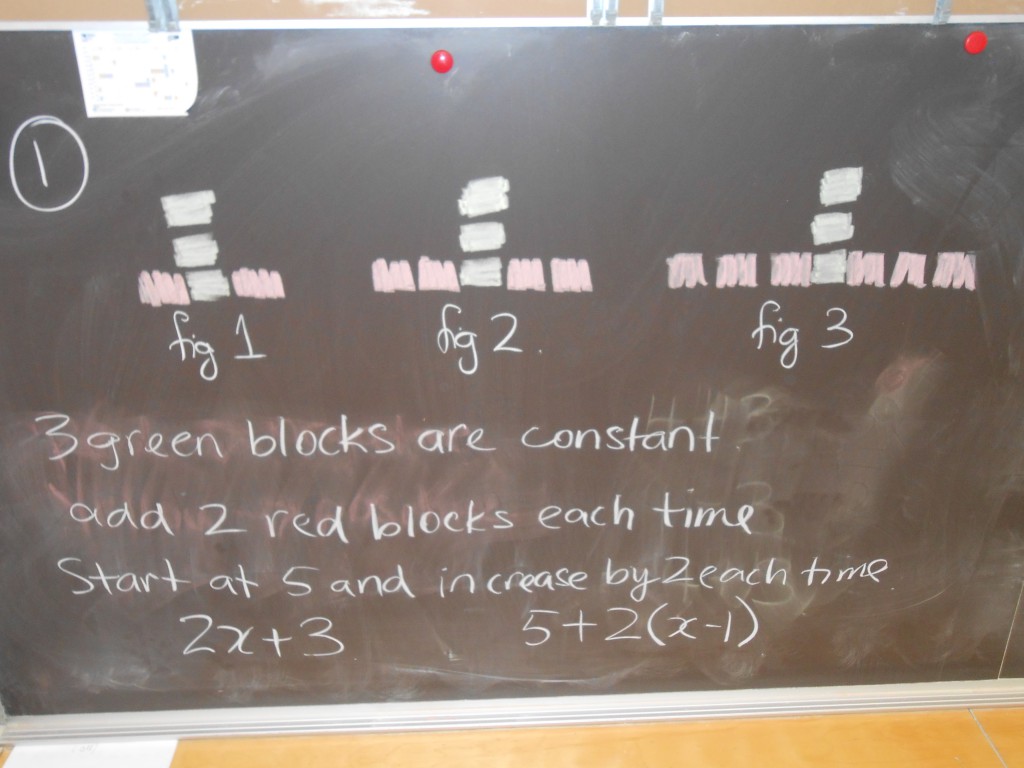 1
fig 1 fig 2. fig 3
3 green blocks are constant.
add 2 red blocks each time
Start at 5 and increase by 2 each time
2x+3 5+2(x-1)